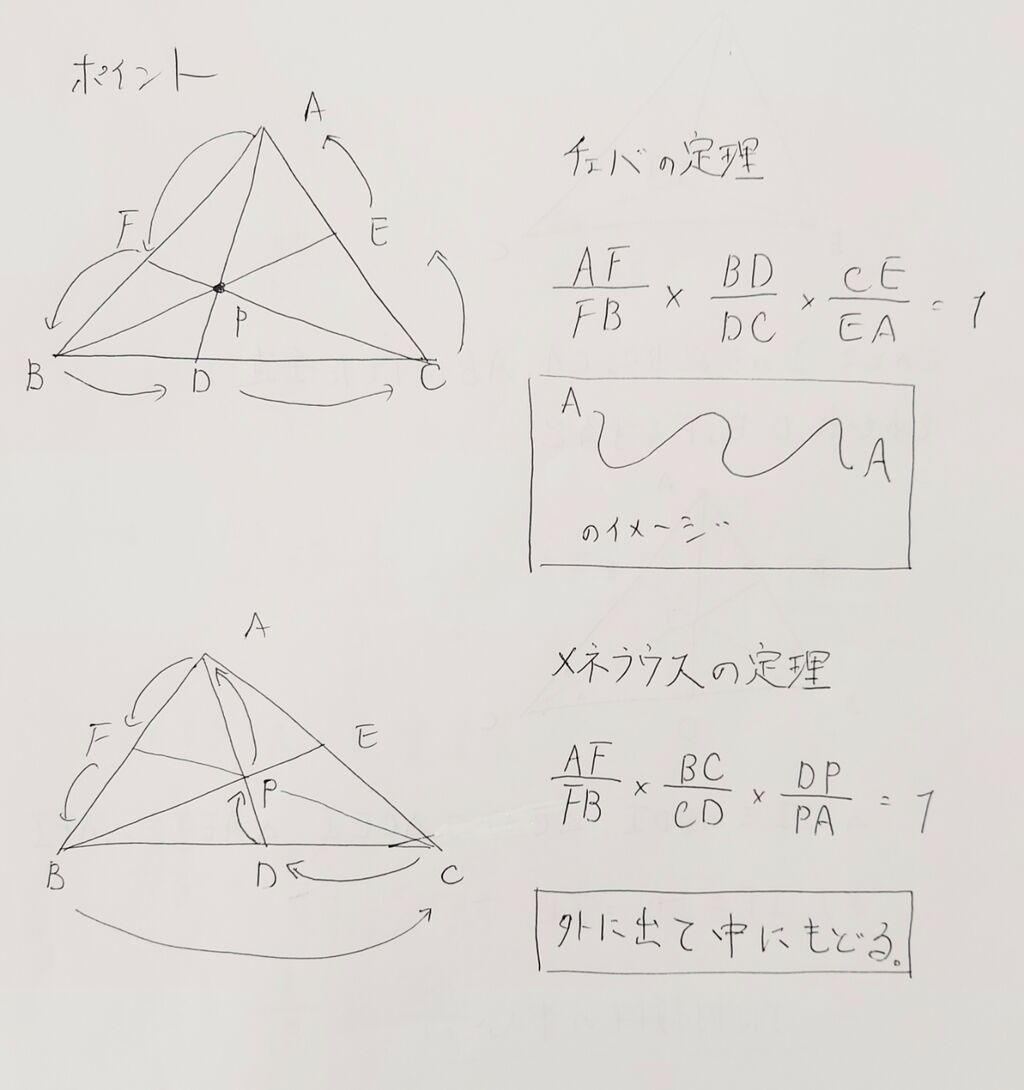 ポイント
A
F
E
P
B
D
C
チェバの定理
AF/FB × BD/DC × CE/EA = 1
A
A
のイメージ..
A
F
E
P
B
D
C
メネラウスの定理
AF/FB × BC/CD × DP/PA = 1
外に出て中にもどる。